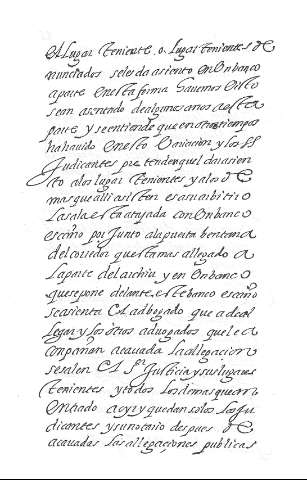 Al Lugar teniente, o, Lugar tenientes de
nunciados seles da asiento en Un banco
aparte en esta forma havemos visto
sean asentado de algunos anos a esta
parte y se entiende que en otros tiempos
ha havido en esto Variacion y los SS
Judicantes pretenden quel dar asien
to a los lugar tenientes y a los de
mas que alli asisten es a su arbitrio
La sala esta atajada con Un banco
escaño por junto a la puerta Ventana
del corredor que esta mas allegado a
la parte del archiu y en Un banco
que se pone delante, este banco escaño
se asienta El adbogado que a de al
legar y los otros advogados que le a
conpañan, acavada la allegacion
se salen El Sr Justicia y sus lugares
tenientes y todos los demas que an
entrado a oyr y quedan solos los Ju
dicantes y su notario despues de
acavadas las allegaçiones publicas